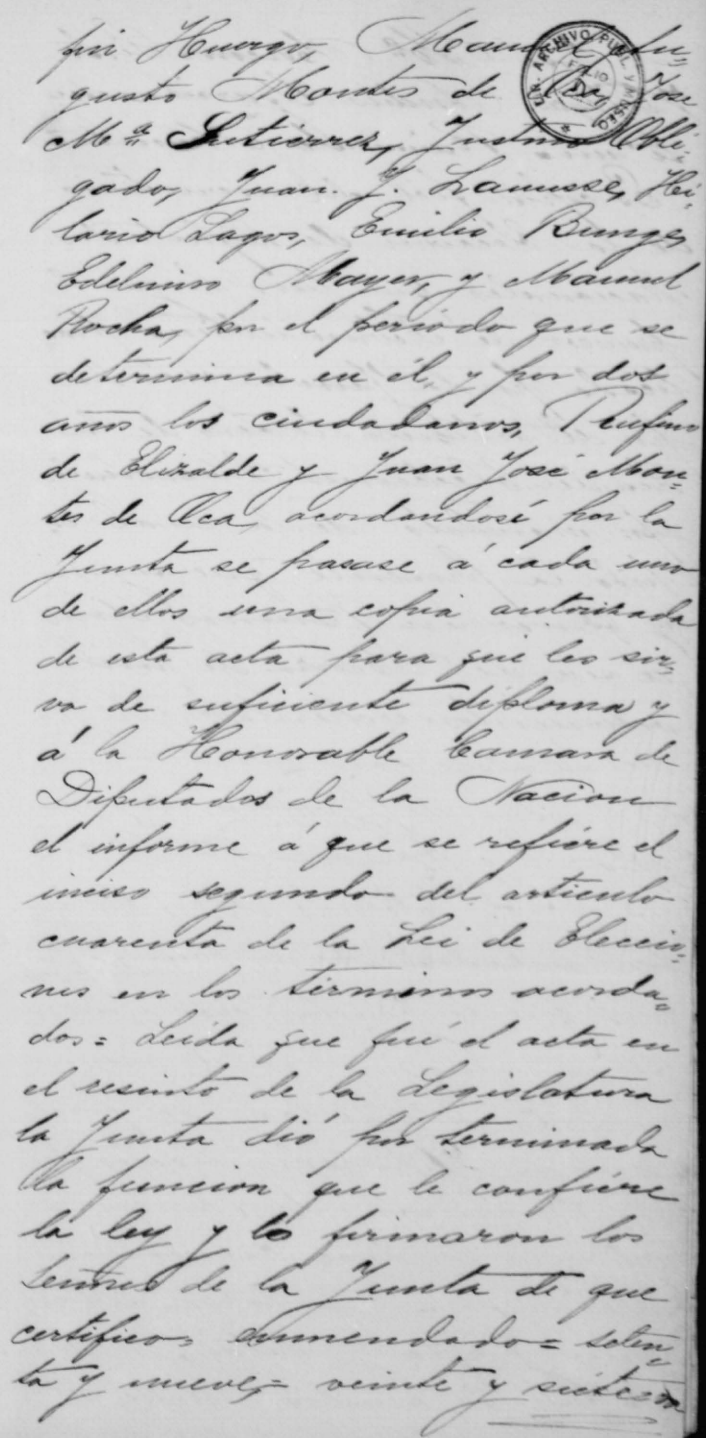 fin Huergo, Manuel Au=
gusto Montes de Oca, José
Mª Gutierrez, Justino Obli-
gado, Juan. J. Lanusse, Hi-
lario Lagos, Emilio Bunge,
Edelmiro Mayer, y Manuel
Rocha, por el periodo que se
determina en él, y por dos
años los ciudadanos, Rufino
de Elizalde y Juan José Mon=
tes de Oca, acordandosé por la
Junta se pasase á cada uno
de ellos una copia autorizada
de esta acta para que les sir=
va de suficiente diploma y
á la Honorable Camara de
Diputados de la Nacion
el informe á que se refiere el
inciso segundo del articulo
cuarenta de la Lei de Eleccio=
nes en los términos acorda=
dos = Leida que fué el acta en
el resinto de la Legislatura
la Junta dió por terminada
la funcion que le confiere
la ley y la firmaron los
Señores de la Junta de que
certifico = enmendado = seten=
ta y nueve = veinte y siete =